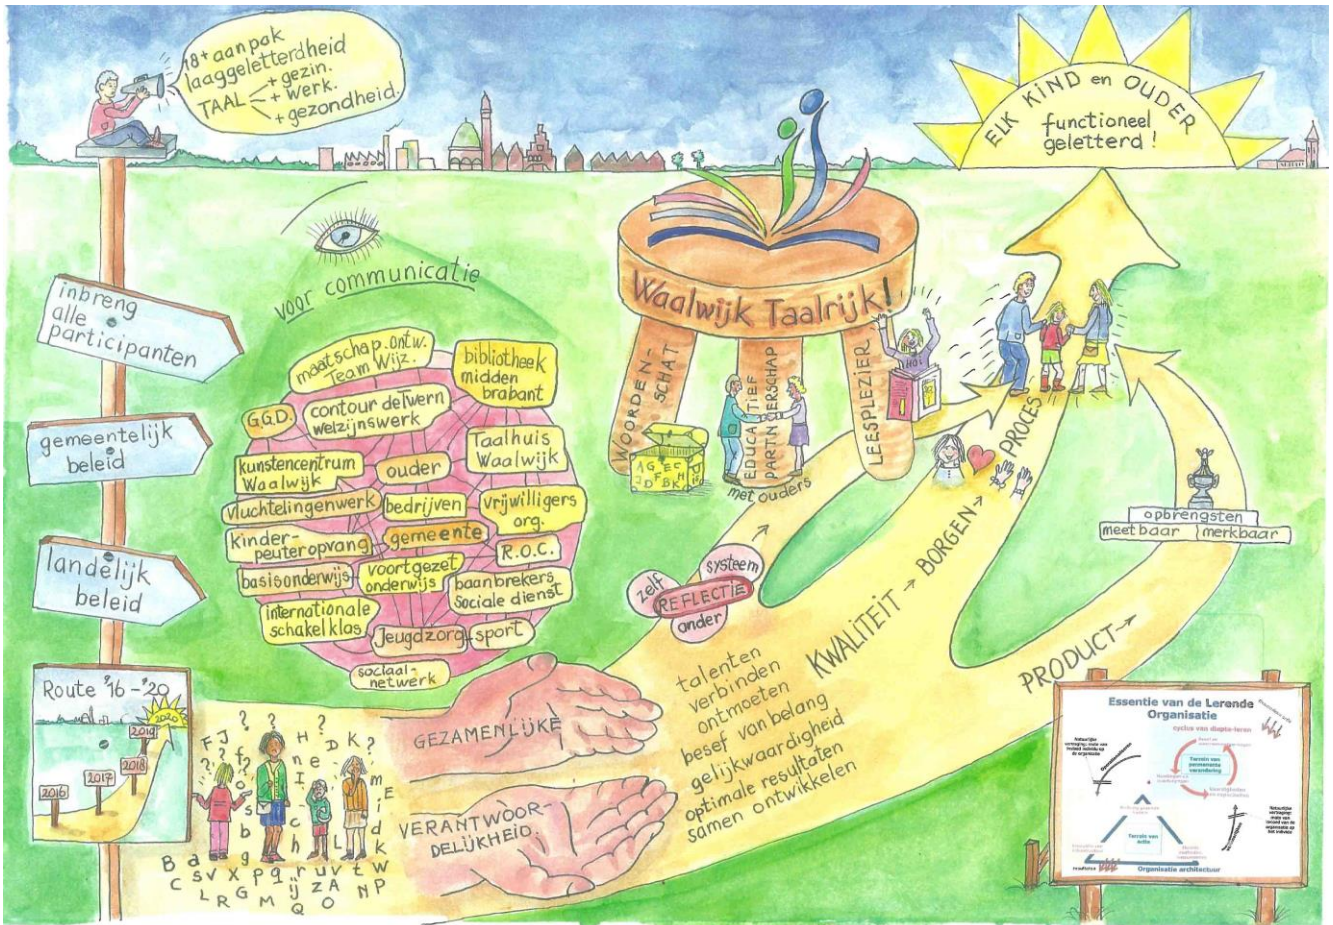 18+ aanpak
laaggeletterdheid
TAAL + gezin.
+ werk.
+ gezondheid.
ELK KIND en OUDER
functioneel
geletterd !
inbreng
alle
participanten
gemeentelijk
beleid
landelijk
beleid
voor communicatie
maatschap. ontw.
Team Wijz.
bibliotheek
midden
brabant
G.G.D.
contour de twern
welzijnswerk
Taalhuis
Waalwijk
kunstencentrum
Waalwijk
ouder
vluchtelingenwerk
bedrijven
vrijwilligers
org.
kinder-
peuteropvang
gemeente
R.O.C.
basisonderwijs
voortgezet
onderwijs
baanbrekers
Sociale dienst
internationale
schakelklas
Jeugdzorg
sport
sociaal-
netwerk
Waalwijk Taalrijk!
WOORDEN-
SCHAT
EDUCATIEF
PARTNERSCHAP
met ouders
LEESPLEZIER
zelf
systeem
REFLECTIE
onder
KWALITEIT → BORGEN → PROCES
PRODUCT →
opbrengsten
meetbaar
merkbaar
GEZAMENLIJKE
VERANTWOOR-
DELIJKHEID.
talenten
verbinden
ontmoeten
besef van belang
gelijkwaardigheid
optimale resultaten
samen ontwikkelen
Route '16 - '20
2020
2019
2018
2017
2016
Essentie van de Lerende
Organisatie
cyclus van diepte-leren
Terrein van
permanente
verandering
Terrein van
actie
Organisatie architectuur